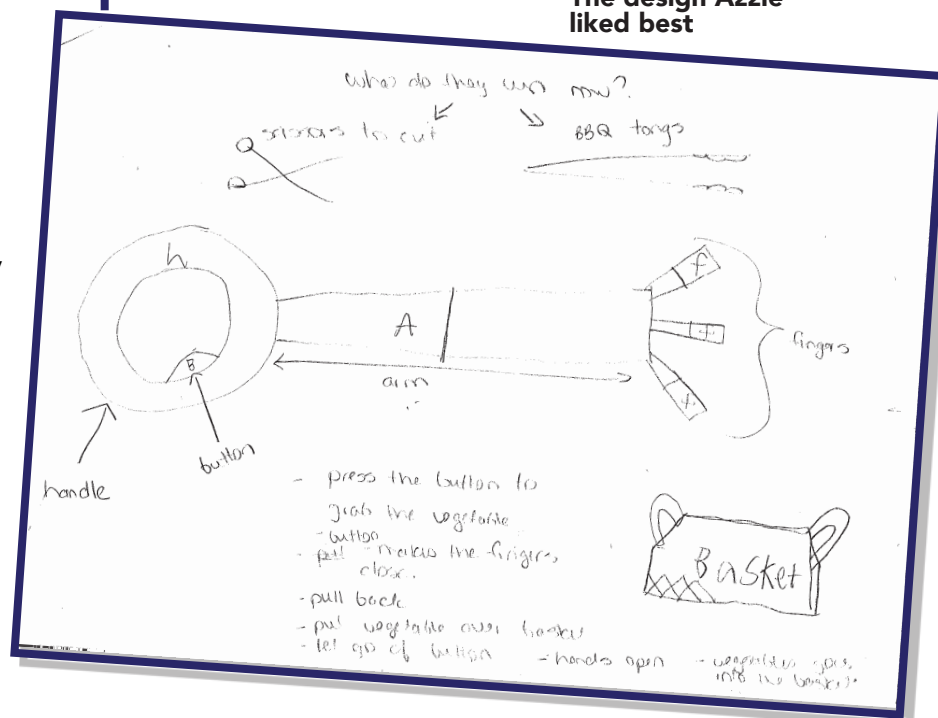 The design Azzie
liked best
what do they use now?
scissors to cut
BBQ tongs
h
B
A
f
f
f
fingers
arm
button
handle
- press the button to
grab the vegetable
- button
- pull - makes the fingers
close.
- pull back
- put vegetable over basket
- let go of button - hands open - vegetables goes
into the basket
Basket